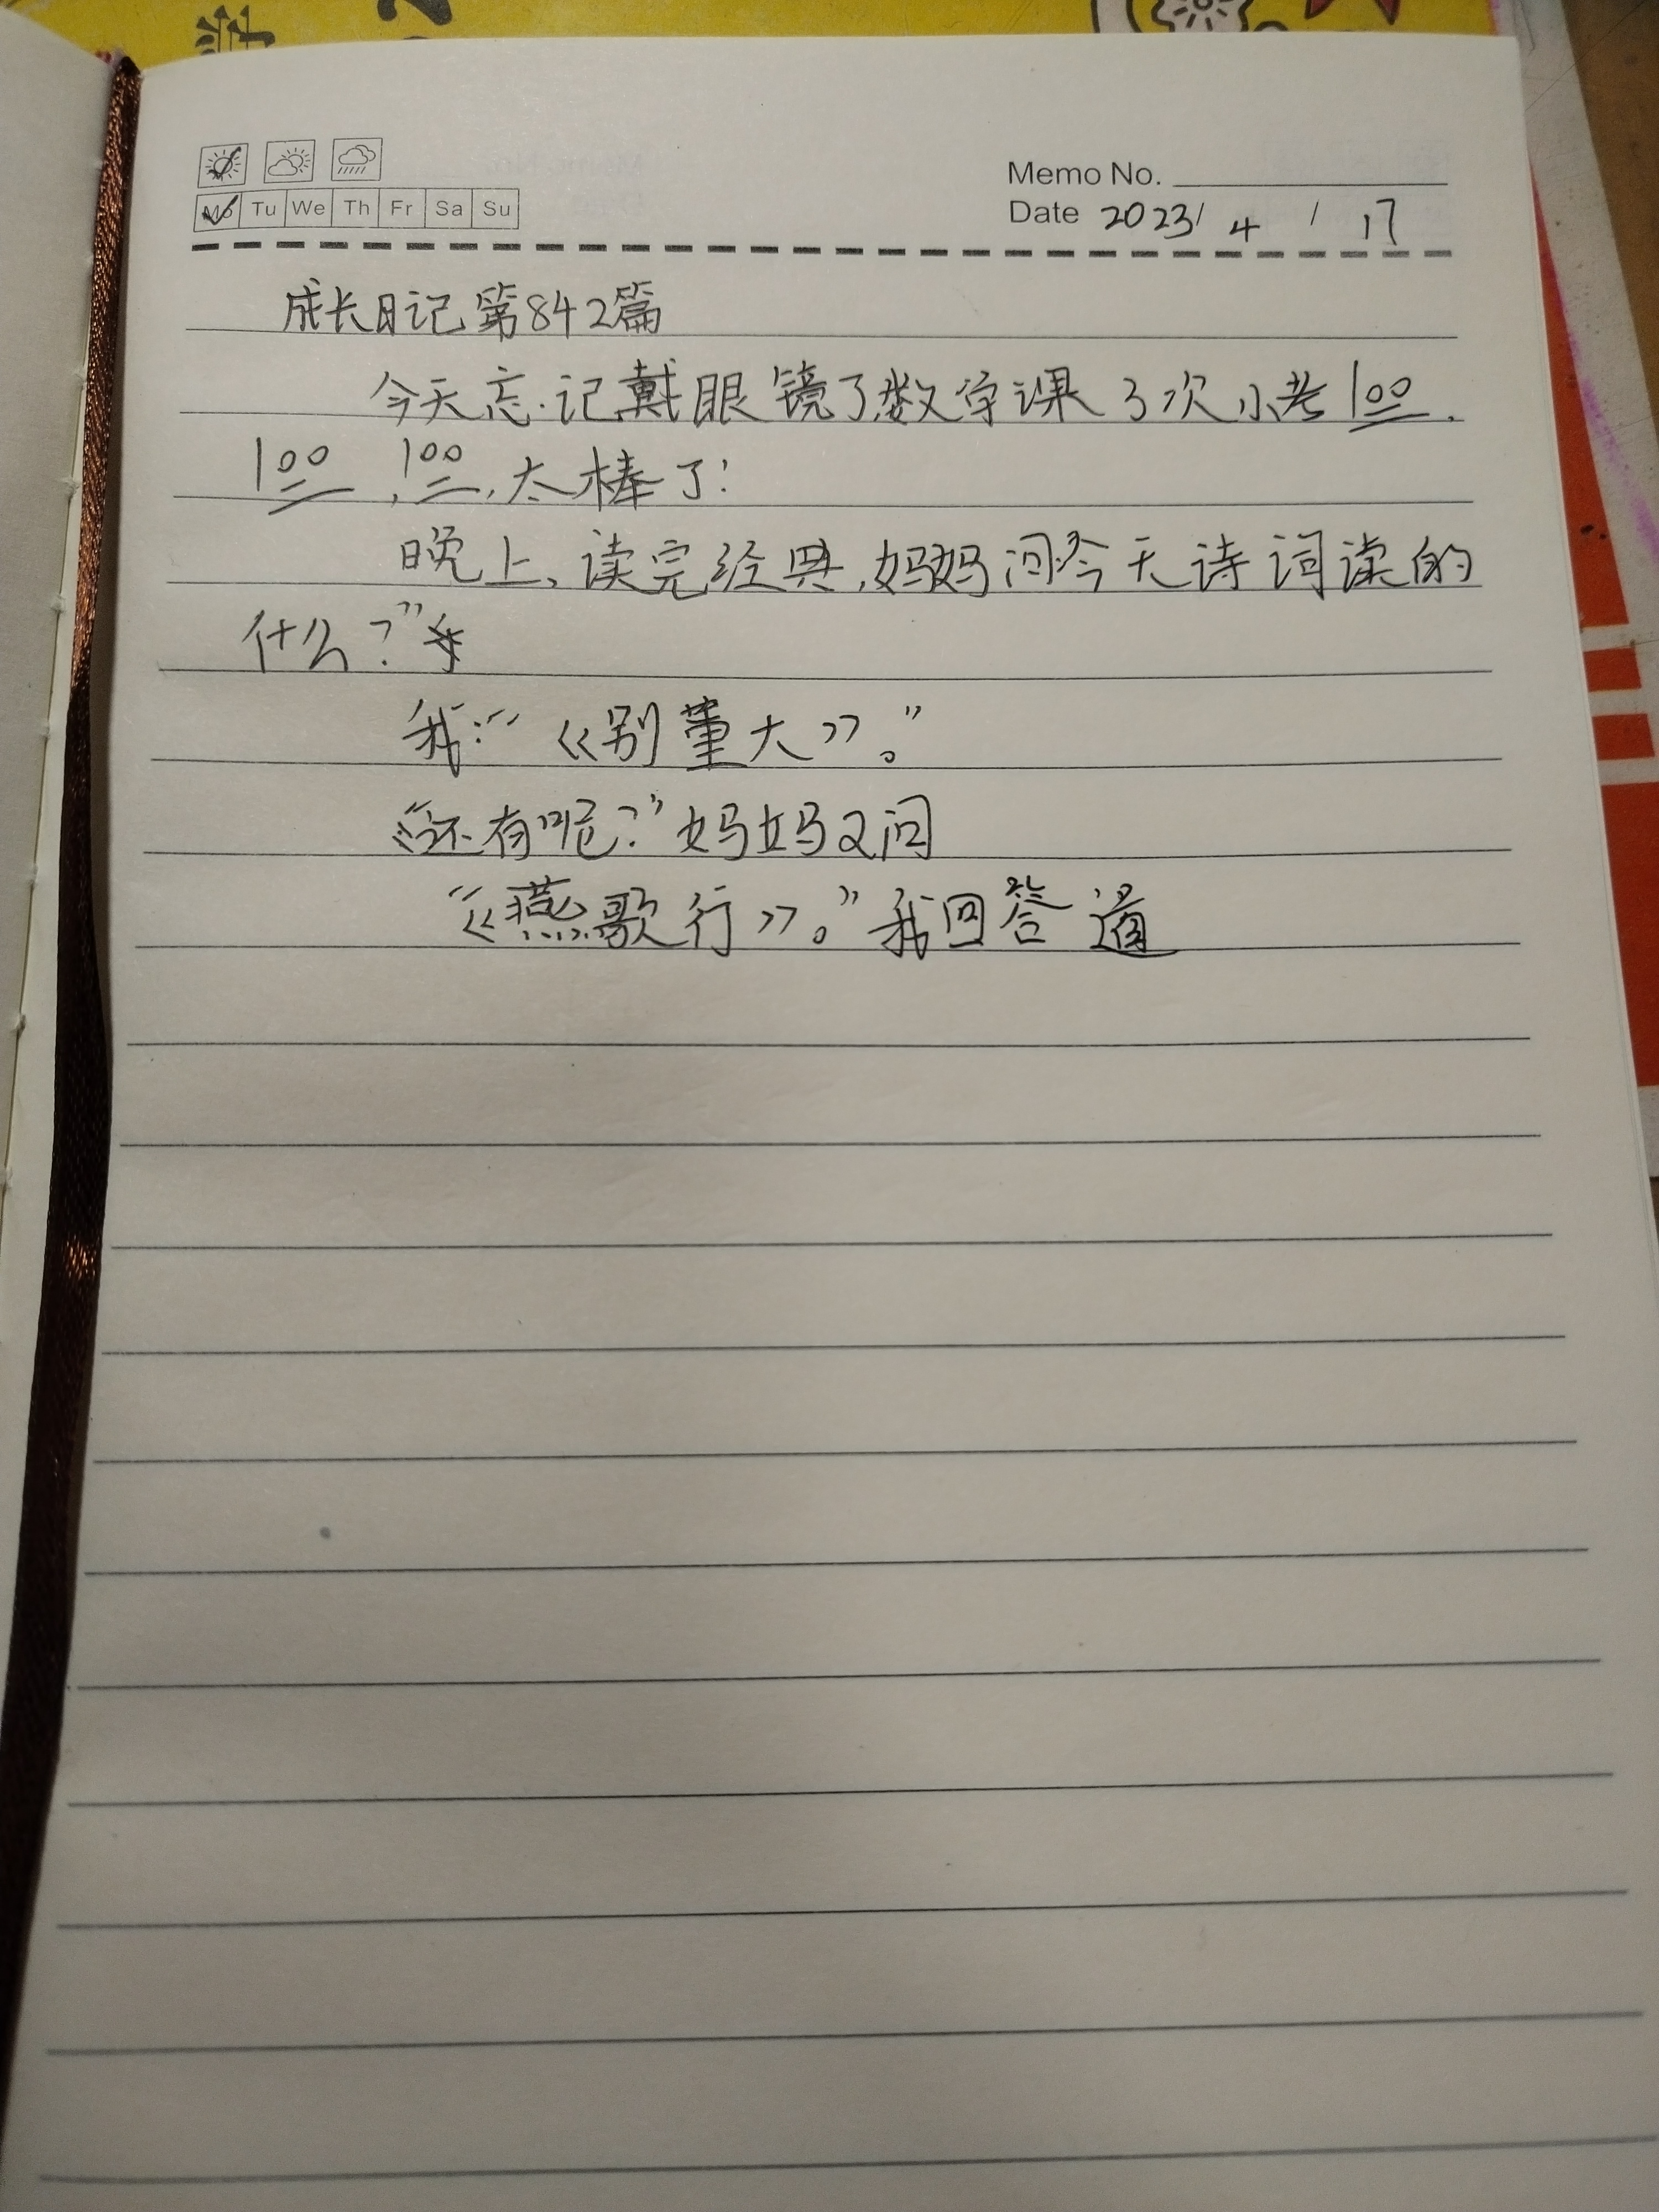 Memo No.
Mo Tu We Th Fr Sa Su
Date 2023/ 4 / 17
成长日记第842篇
今天忘记戴眼镜了数学课3次小考100、
100、100,太棒了!
晚上,读完经典,妈妈问今天诗词读的
什么?”
我:“《别董大》。”
“还有呢?”妈妈又问
“《燕歌行》。”我回答道